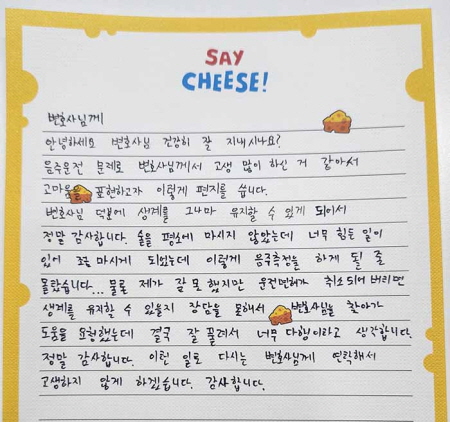 SAY
CHEESE!
변호사님께
안녕하세요 변호사님 건강히 잘 지내시나요?
음주운전 문제로 변호사님께서 고생 많이 하신 거 같아서
고마움을 표현하고자 이렇게 편지를 씁니다.
변호사님 덕분에 생계를 그나마 유지할 수 있게 되어서
정말 감사합니다. 술을 평소에 마시지 않았는데 너무 힘든 일이
있어 조금 마시게 되었는데 이렇게 음주측정을 하게 될 줄
몰랐습니다... 물론 제가 잘못했지만 운전면허가 취소되어 버리면
생계를 유지할 수 있을지 장담을 못해서 변호사님을 찾아가
도움을 요청했는데 결국 잘 풀려서 너무 다행이라고 생각합니다.
정말 감사합니다. 이런 일로 다시는 변호사님께 연락해서
고생하지 않게 하겠습니다. 감사합니다.